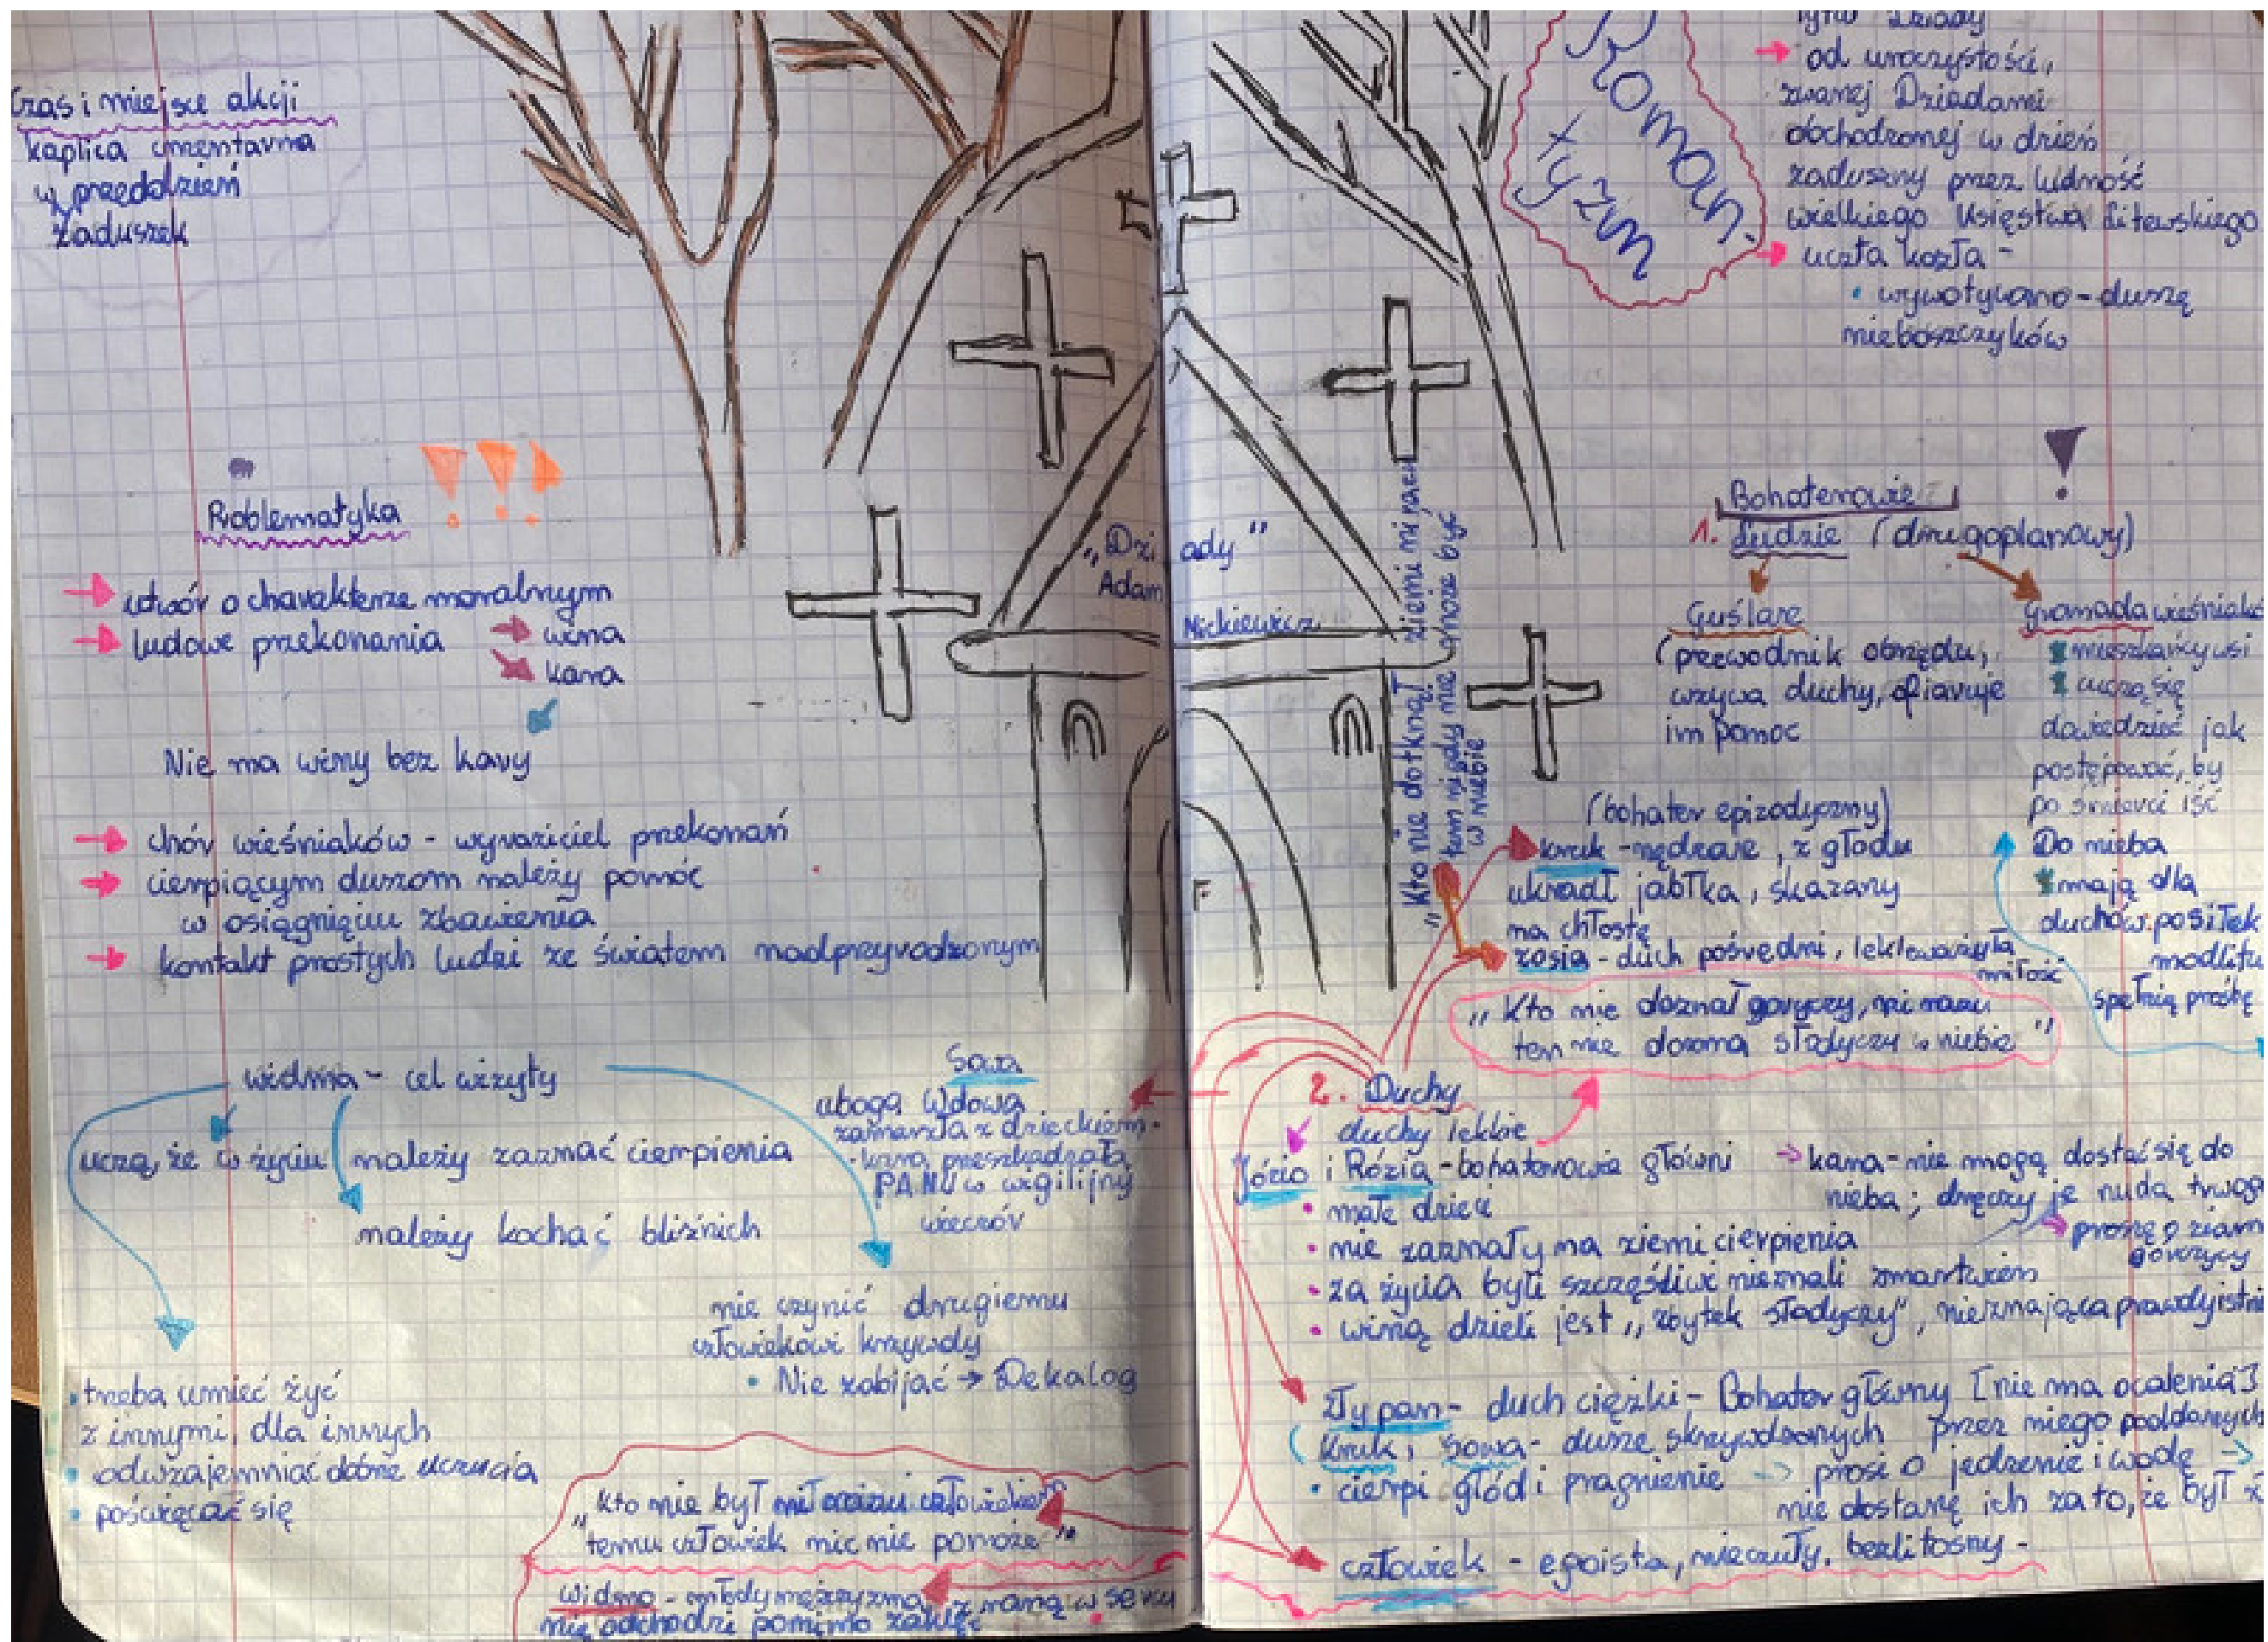 Czas i miejsce akcji
kaplica cmentarna
w przeddzień
zaduszek
Problematyka !!!
utwór o charakterze moralnym
ludowe przekonania → wina
kara
Nie ma winy bez kary
chór wieśniaków - wyraziciel przekonań
cierpiącym duszom należy pomóc
w osiągnięciu zbawienia
kontakt prostych ludzi ze światem nadprzyrodzonym
widma - cel wizyty
uczą, że w życiu należy zaznać cierpienia
należy kochać bliźnich
• trzeba umieć żyć
z innymi, dla innych
• odwzajemniać dobre uczucia
• poświęcać się
Sowa
uboga wdowa
zamarzła z dzieckiem
PANU w wigilijny
wieczór
nie czynić drugiemu
człowiekowi krzywdy
• Nie zabijać → Dekalog
"kto nie był ni razu człowiekiem
temu człowiek nic nie pomoże"
widmo - młody mężczyzna z raną w sercu
nie odchodzi pomimo zaklęć
"Dziady"
Adam Mickiewicz
F
"Kto nie dotknął ziemi ni razu
tem nigdy nie może być
w niebie
Roman-
tyzm
tytuł Dziady
→ od uroczystości,
zwanej Dziadami
obchodzonej w dzień
zaduszny przez ludność
wielkiego Księstwa Litewskiego
→ uczta kozła -
• wywoływano - duszę
nieboszczyków
Bohaterowie !
1. Ludzie (drugoplanowy)
Guślarz
(przewodnik obrzędu,
wzywa duchy, ofiaruje
im pomoc
Gromada wieśniakó
mieszkańcy wsi
uczą się
dowiedzieć jak
postępować, by
po śmierci iść
Do nieba
mają dla
duchów posiłek
modlitw
spełnią prośbę
(bohater epizodyczny)
kruk - nędzarz, z głodu
ukradł jabłka, skazany
na chłostę
zosia - duch pośredni, lekceważyła
miłość
"Kto nie doznał goryczy, ni razu
ten nie dozna słodyczy w niebie"
2. Duchy
duchy lekkie
Józio i Rózia - bohaterowie główni
• małe dzieci
• nie zaznały na ziemi cierpienia
• za życia byli szczęśliwi nieznali zmartwień
• winą dzieci jest "zbytek słodyczy", nieznająca prawdy istni
→ kara - nie mogą dostać się do
nieba; dręczy je nuda trwoga
→ proszę o ziarn
gorczycy
Zły pan - duch ciężki - Bohater główny [nie ma ocalenia]
(kruk, sowa - dusze skrzywdzonych przez niego poddanych
• cierpi głód i pragnienie → prosi o jedzenie i wodę →
nie dostanę ich za to, że był z
człowiek - egoista, nieczuły, bezlitosny -